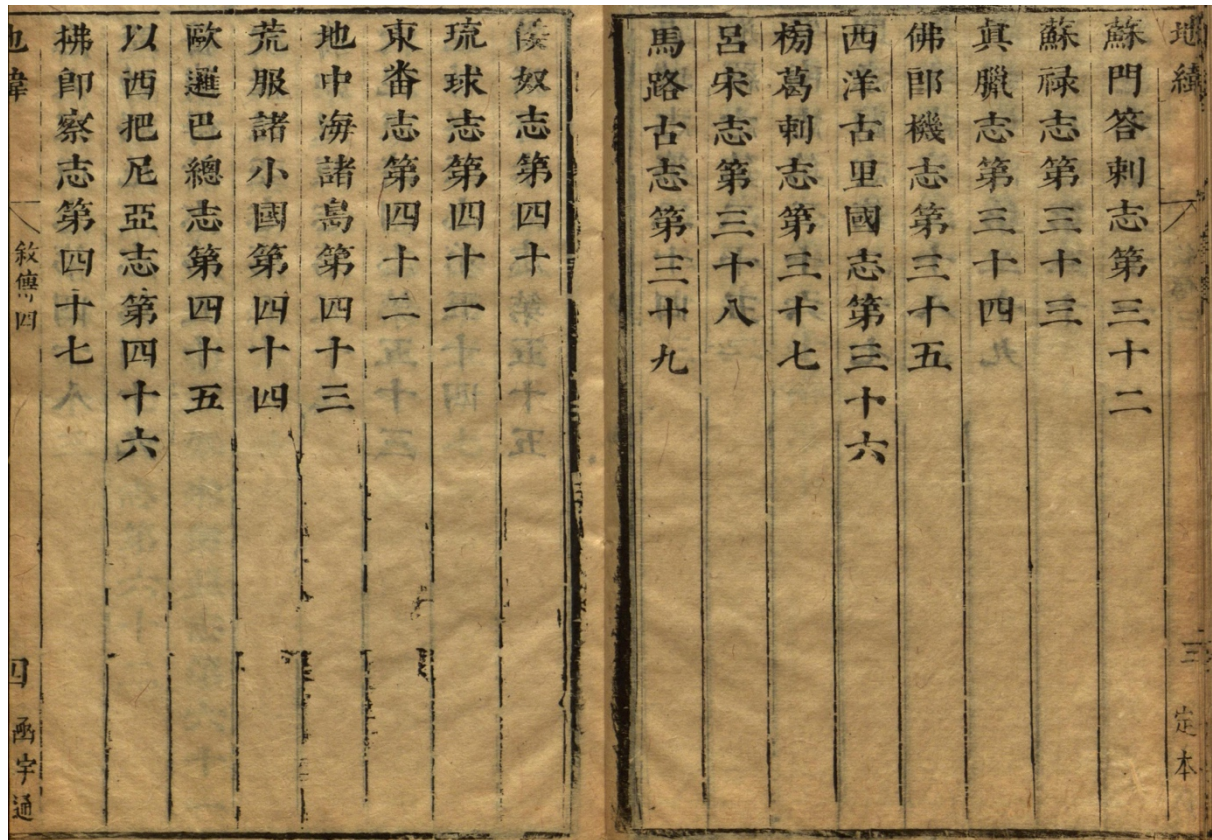 地緯
三
定本
蘇門答剌志第三十二
蘇祿志第三十三
眞臘志第三十四
佛郎機志第三十五
西洋古里國志第三十六
榜葛剌志第三十七
呂宋志第三十八
馬路古志第三十九
倭奴志第四十
琉球志第四十一
東番志第四十二
地中海諸島第四十三
荒服諸小國第四十四
歐邏巴總志第四十五
以西把尼亞志第四十六
拂郎察志第四十七
地緯
敘傳四
四
函宇通